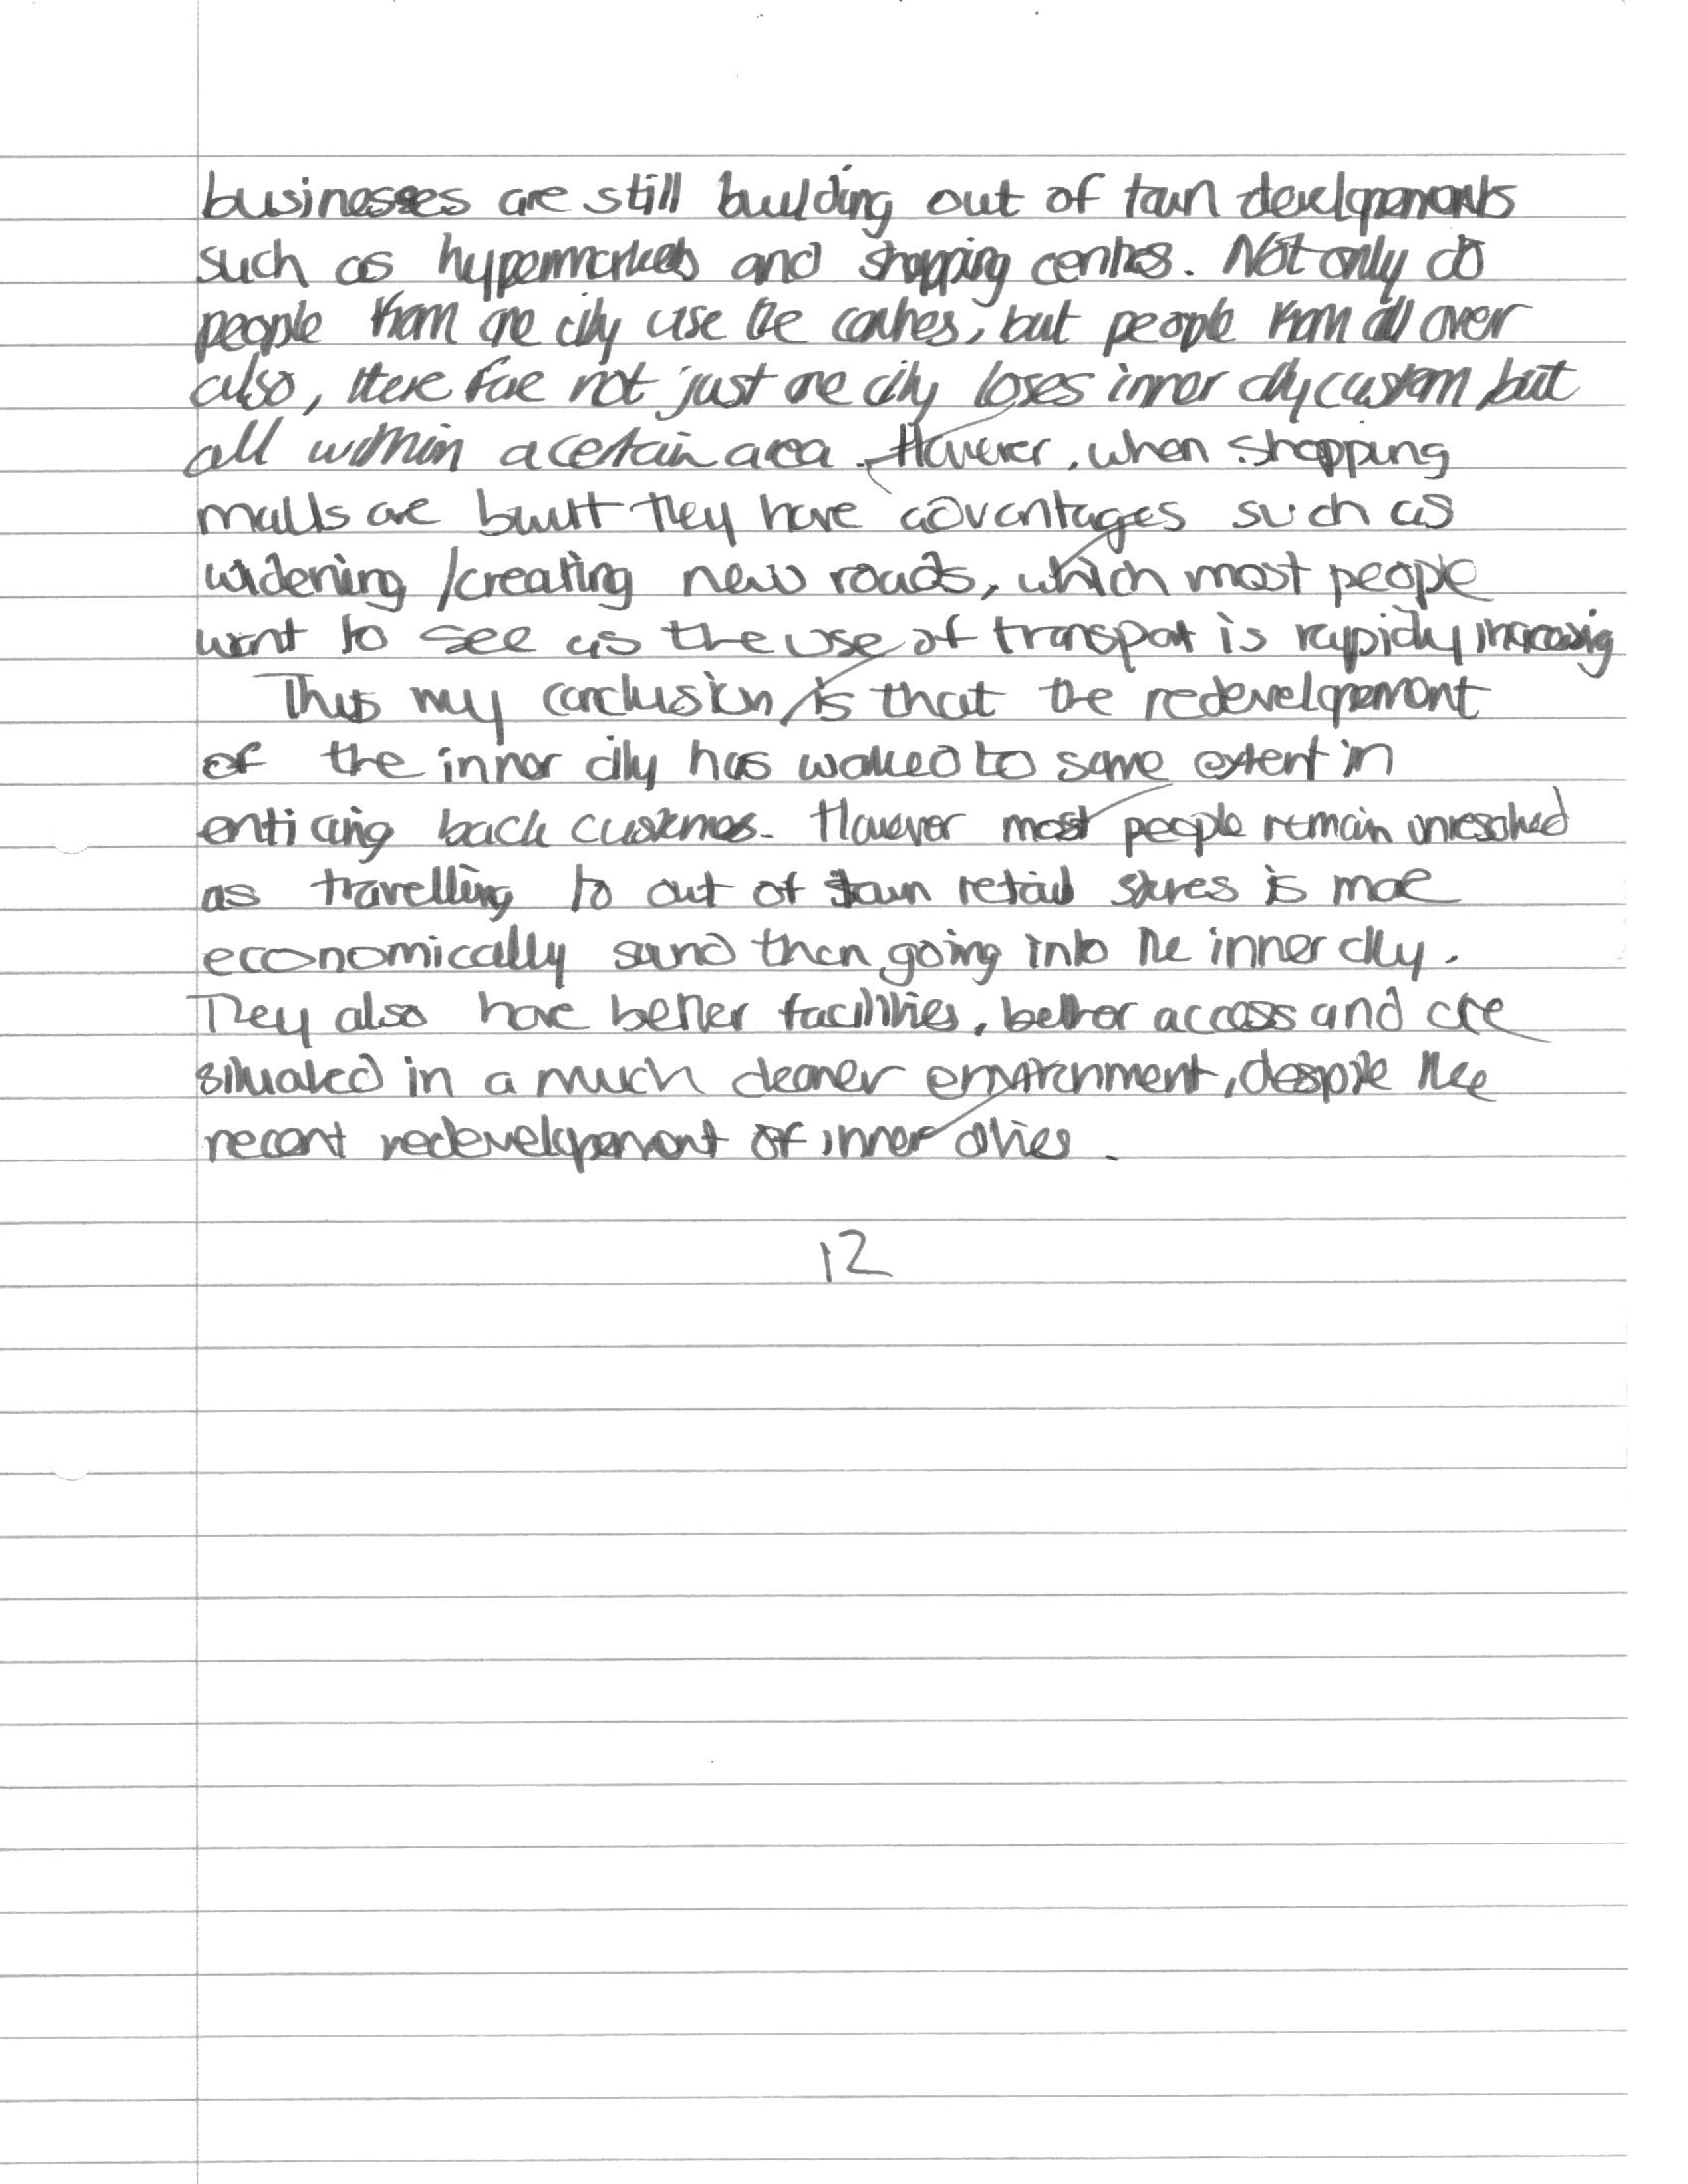 businesses are still building out of town developements
such as hypermarkets and shopping centres. Not only do
people from one city use the centres, but people from all over
also, there fore not just one city loses inner city custom, but
all within a certain area. However, when shopping
malls are built they have advantages such as
widening /creating new roads, which most people
want to see as the use of transport is rapidly increasing
Thus my conclusion is that the redevelopement
of the inner city has worked to some extent in
enticing back customers. However most people remain unresolved
as travelling to out of town retail stores is more
economically sound than going into the inner city.
They also have better facilities, better access and are
situated in a much cleaner environment, despite the
recent redevelopement of inner cities.
12